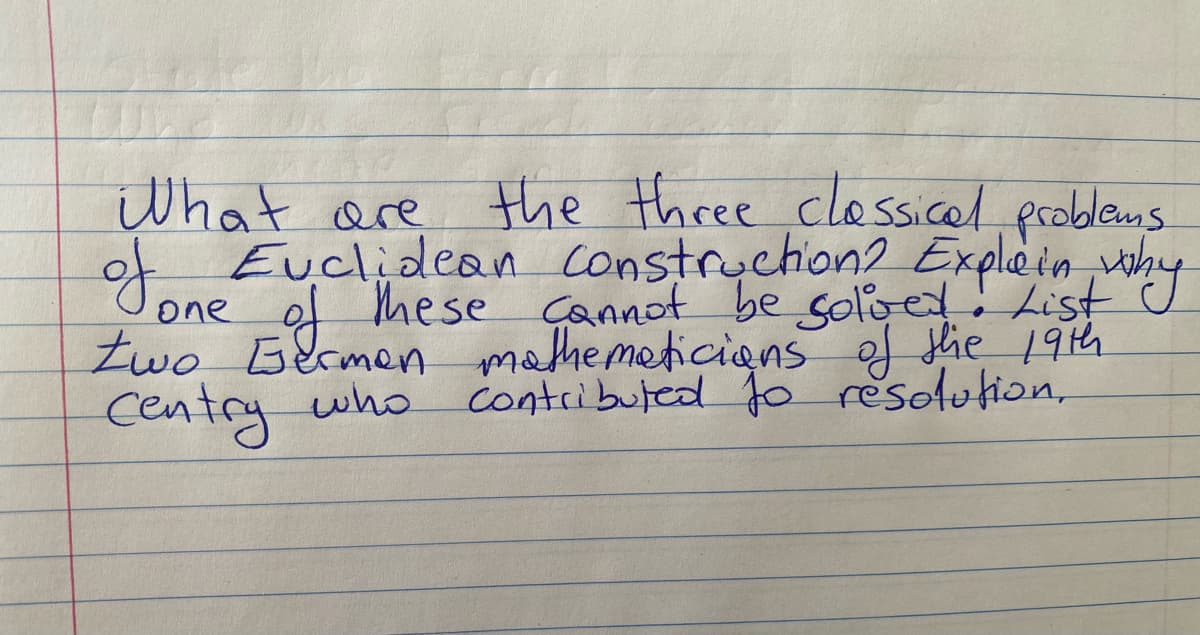 What are the three classical problems
of Euclidean construction? Explain why
one of these cannot be solved. List
two German mathematicians of the 19th
Centry who contributed to resolution.